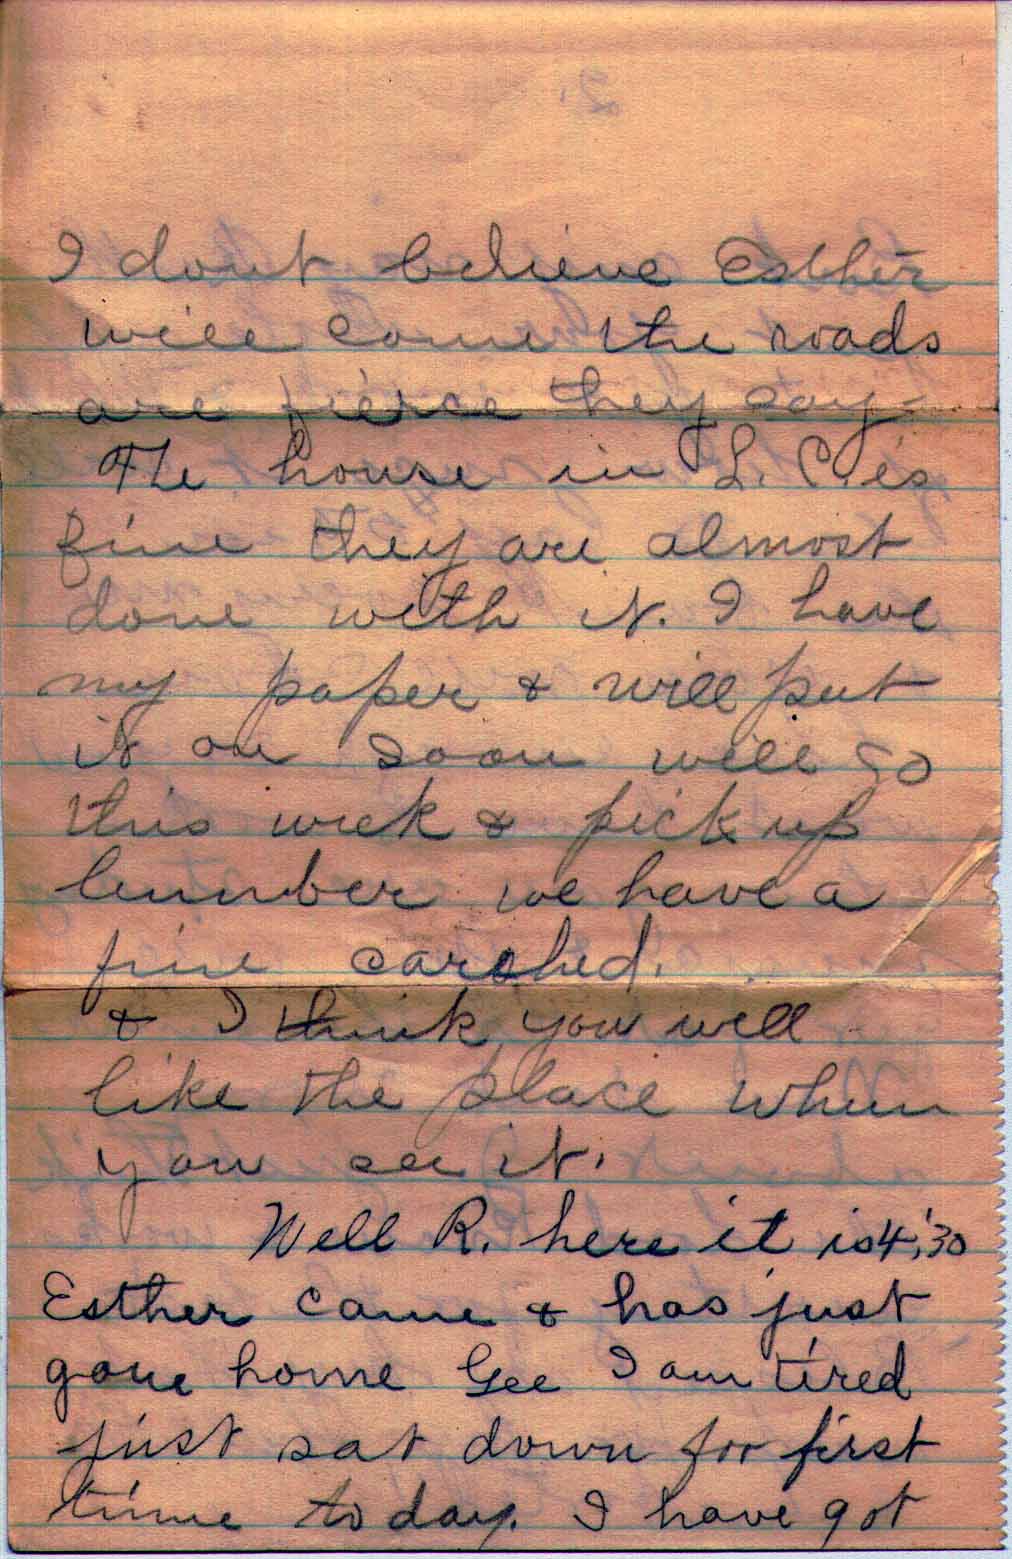 I dont believe Esther
will come the roads
are fierce they say -
The house in L. C. is
fine they are almost
done with it. I have
my paper & will put
it on soon will go
this week & pick up
lumber we have a
fine carshed.
& I think you will
like the place when
you see it.
Well R. here it is 4:30
Esther came & has just
gone home Gee I am tired
just sat down for first
time to day. I have got